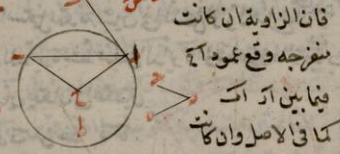 فان الزاوية ان كانت
منفرجه وقع عمود آح
فيما بين آد آب
كما فى الاصل وان كانت